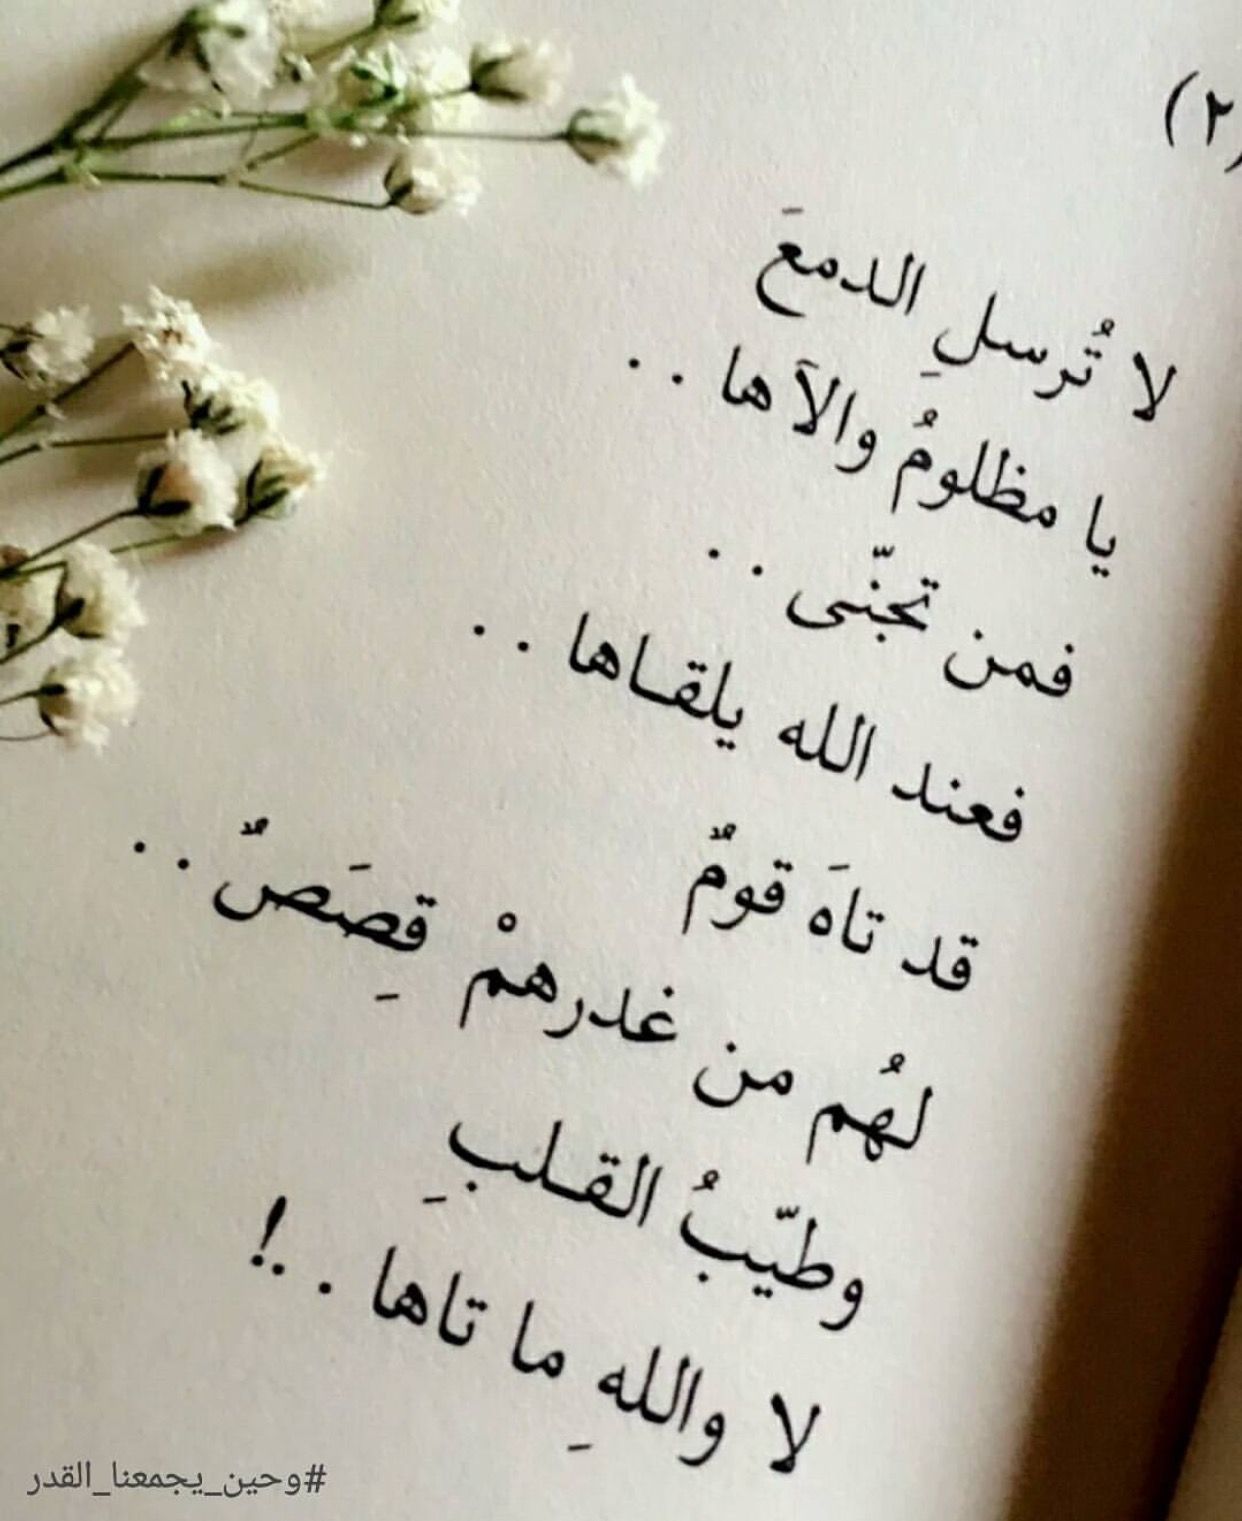 (٢)
لا تُرسلِ الدمعَ
يا مظلومُ والآها . .
فمن تجنّى . .
فعند الله يلقاها . .
قد تاهَ قومٌ
لهُم من غدرهمْ قِصَصٌ . .
وطيّبُ القلبِ
لا واللهِ ما تاها . .!
#وحين_يجمعنا_القدر